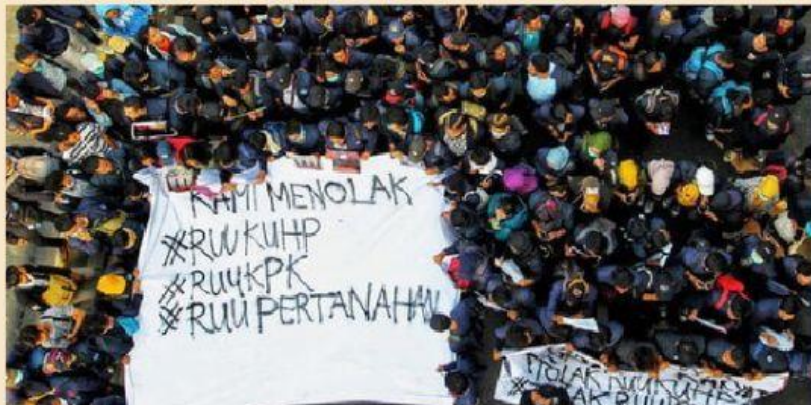 KAMI MENOLAK
#RUUKUHP
#RUUKPK
#RUUPERTANAHAN
RUUKUHP